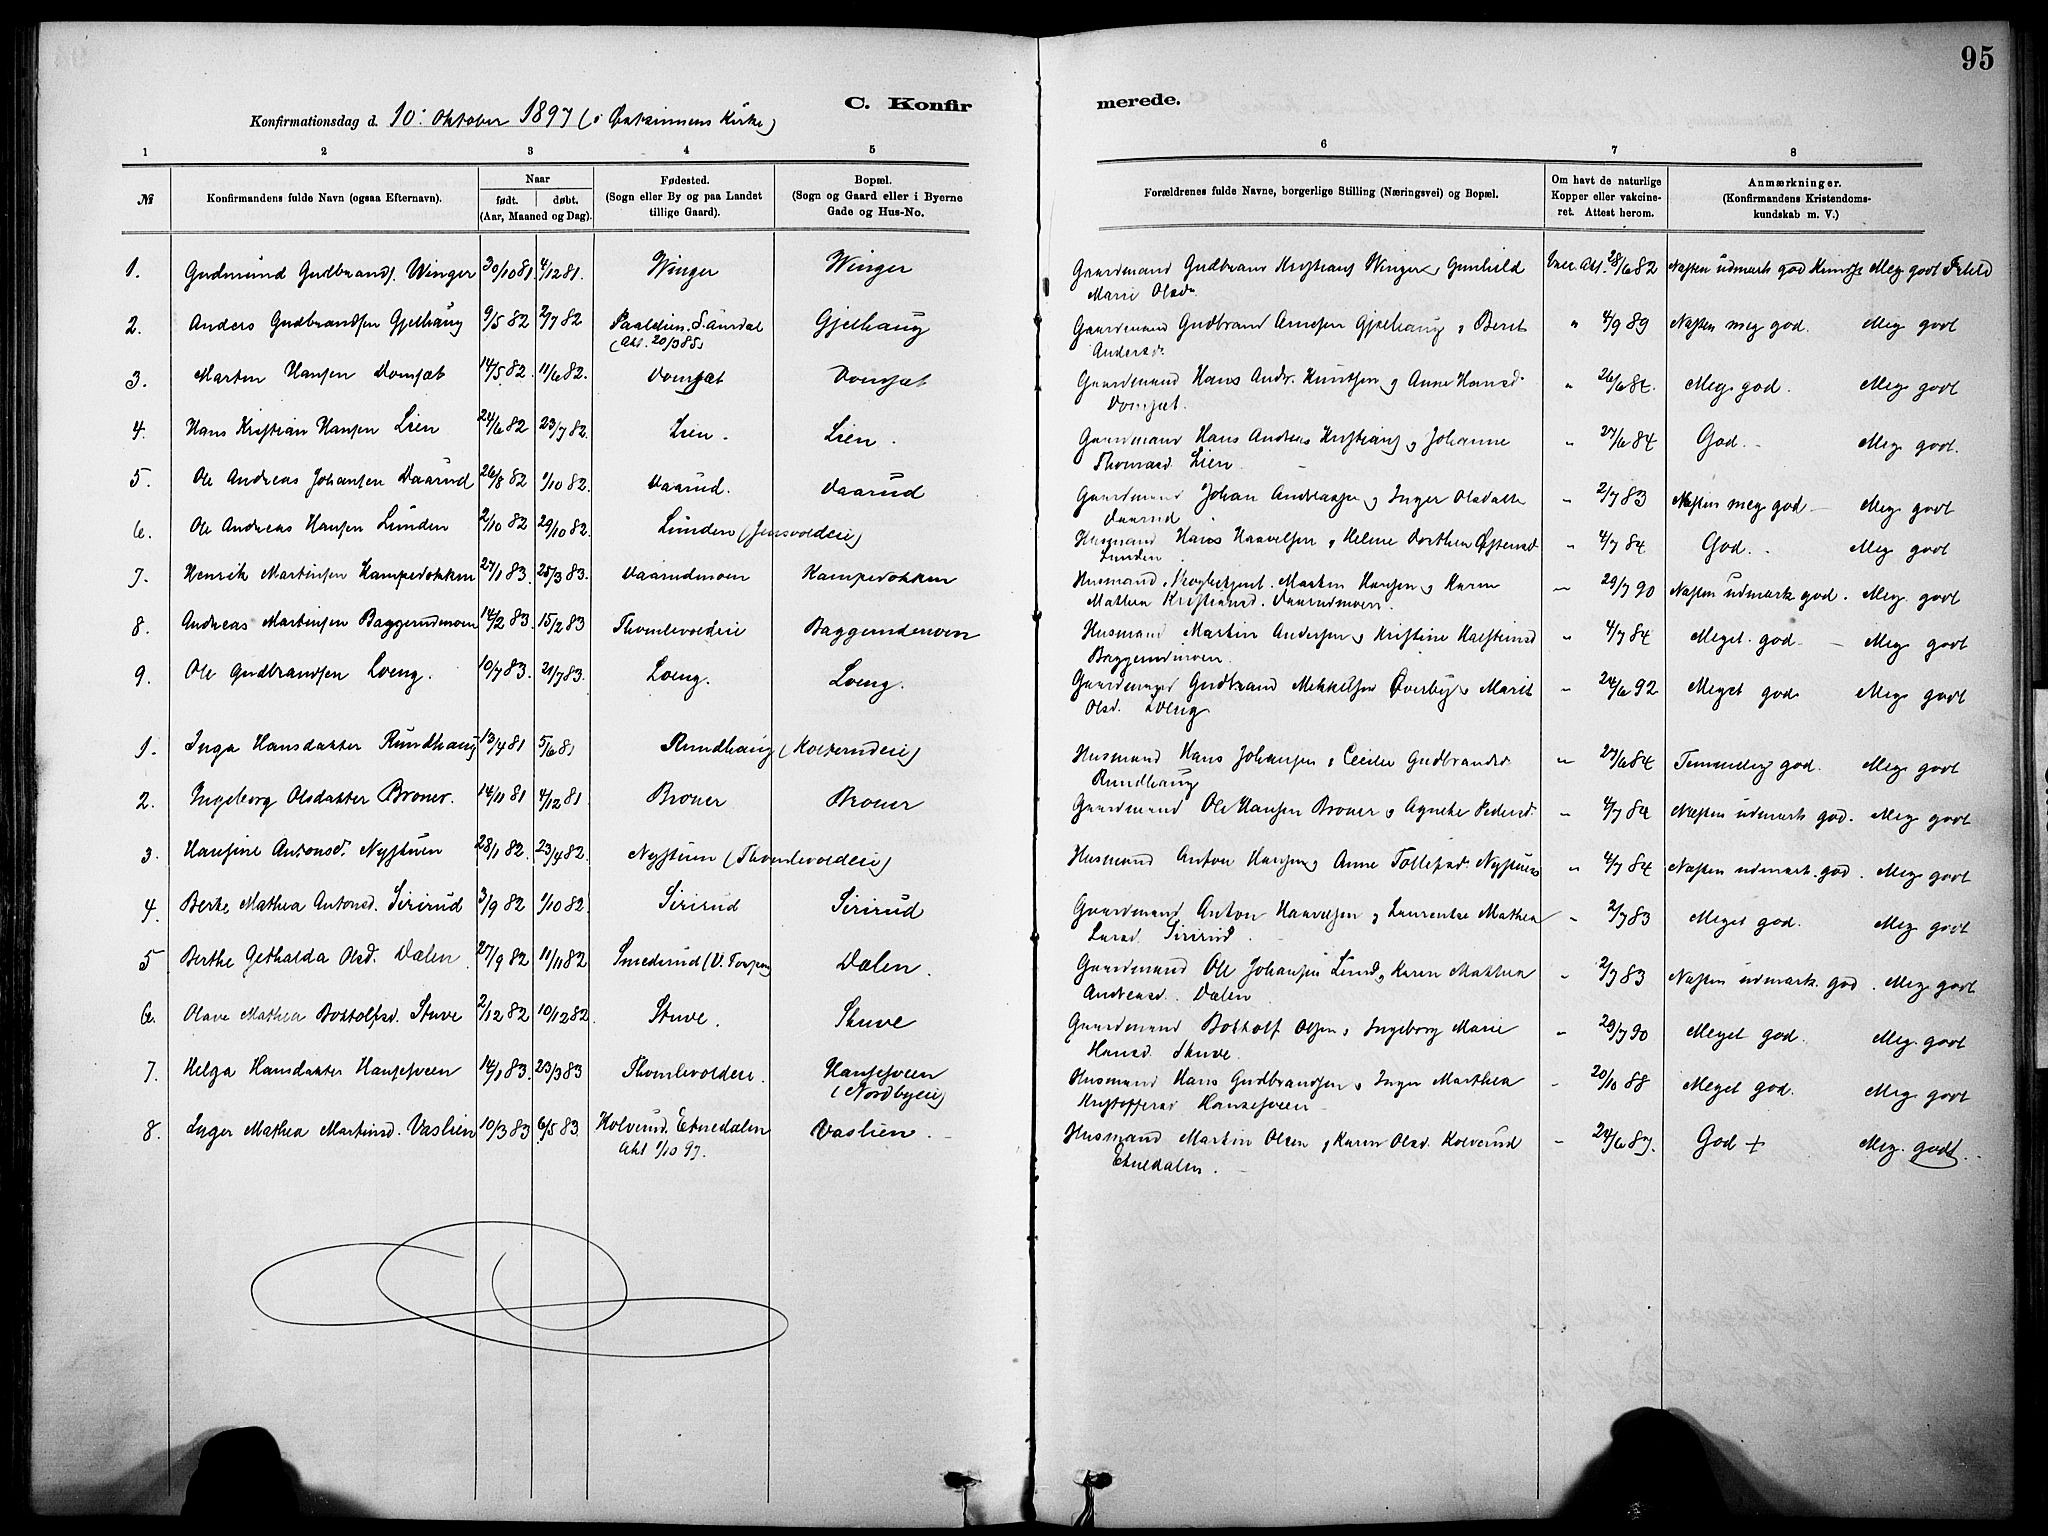 95
C. Konfirmerede.
Konfirmationsdag d. 10: Oktober 1897 (i Østsinnens Kirke)
1 2 3 4 5 6 7 8
№ Konfirmandens fulde Navn (ogsaa Efternavn). Naar født. døbt. (Aar, Maaned og Dag). Fødested. (Sogn eller By og paa Landet tillige Gaard). Bopæl. (Sogn og Gaard eller i Byerne Gade og Hus-No. Forældrenes fulde Navne, borgerlige Stilling (Næringsvei) og Bopæl. Om havt de naturlige Kopper eller vakcineret. Attest herom. Anmærkninger. (Konfirmandens Kristendomskundskab m. V.)
1. Gudmund Gudbrands. Winger 30/10 81. 4/12 81. Winger Winger Gaardmand Gudbrand Kristians. Winger, Gunhild Vacc. Att. 28/6 82 Næsten udmærk. god Kundsk. Meg. godt Forhold
Marie Olsdr.
2. Anders Gudbrandsen Gjelhaug 9/5 82 2/7 82 S. Aurdal Gjelhaug Gaardmand Gudbrand Arnesen Gjelhaug & Berit " 4/9 89 Næsten meg. god. Meg. godt
(Att. 20/3 85) Andersdr.
3. Martin Hansen Domsæt 14/5 82 11/6 82. Domsæt Domsæt Gaardmand Hans Andr. Knutsen & Anne Hansd. " 26/6 84. Meg. god. Meg. godt
Domsæt.
4. Hans Kristian Hansen Lien 24/6 82 23/7 82. Lien. Lien. Gaardmand Hans Andreas Kristians. & Johanne " 27/6 84 God. Meg. godt.
Thomasd. Lien.
5. Ole Andreas Johansen Daarud 26/8 82 1/10 82. Daarud. Daarud Gaardmand Johan Andreassen & Inger Olsdatter " 2/7 83 Næsten meg. god Meg. godt
Daarud
6. Ole Andreas Hansen Lunden 2/10 82 29/10 82. Lunden (Jensvoldeie) Husmand Hans Haavelsen & Helene Dorthea Østensd. " 4/7 84 God. Meg. godt
Lunden
7. Henrik Martinsen Kampedokken 27/1 83. 25/3 83. Daarudmoen Kampedokken Husmand, Skogbetjent Martin Hansen & Karen " 29/7 90 Næsten udmærk. god. Meg. godt
Mathea Kristiansd. Daarudmoen.
8. Andreas Martinsen Baggerudmoen 14/2 83 15/2 83 Thomlevoldeie Baggerudmoen Husmand Martin Andersen & Kristine Halsteinsd. " 4/7 84 Meget god. Meg. godt
Baggerudmoen.
9. Ole Gudbrandsen Loeng. 10/7 83. 21/7 83. Loeng. Loeng. Gaardmand Gudbrand Mikkelsen Øverby & Marit " 24/6 92 Meget god Meg. godt
Olsd. Loeng
1. Inga Hansdatter Rundhaug 13/4 81 5/6 81 Rundhaug (Kolterudeie) Husmand Hans Johansen & Cecilie Gudbrandsd. " 27/6 84 Temmelig god. Meg. godt
Rundhaug
2. Ingeborg Olsdatter Broner. 14/11 81 4/12 81 Broner Broner Gaardmand Ole Hansen Broner & Agnethe Pedersd. " 4/7 84 Næsten udmærk. god. Meg. godt
3. Hansine Antonsd. Nystuen 28/1 82. 23/4 82. Nystuen (Thomlevoldeie) Husmand Anton Hansen & Anne Tollefsd. Nystuen " 4/7 84 Næsten udmærk. god. Meg. godt
4. Berte Mathea Antonsd. Sirirud 3/9 82 1/10 82. Sirirud Sirirud Gaardmand Anton Haavelsen & Laurentse Mathea " 2/7 83 Meget god. Meg. godt
Larsd. Sirirud.
5 Berthe Gethalda Olsd. Dalen 27/9 82 11/11 82 Smedsrud (V. Torpen) Dalen. Gaardmand Ole Johansen Lund & Karen Mathea " 2/7 83 Næsten udmærk. god. Meg. godt
Andreasd. Dalen
6. Olave Mathea Bottolfsd. Stuve 2/12 82 10/12 82. Stuve. Stuve Gaardmand Bottolf Olsen & Ingeborg Marie " 29/7 90 Meget god. Meg. godt
Hansd. Stuve.
7. Helga Hansdatter Hansesveen 14/1 83. 23/3 83 Thomlevoldeie. Hansesveen Husmand Hans Gudbrandsen & Inger Marthea " 20/10 88 Meget god. Meg. godt
(Nordbyeie) Kristoffersd. Hansesveen
8. Inger Mathea Martinsd. Vaslien 10/3 83 6/5 83 Kolverud. Etnedalen Vaslien. Husmand Martin Olsen & Karen Olsd. Kolverud " 24/6 87. God + Meg. godt.
Att 1/10 97. Etnedalen.